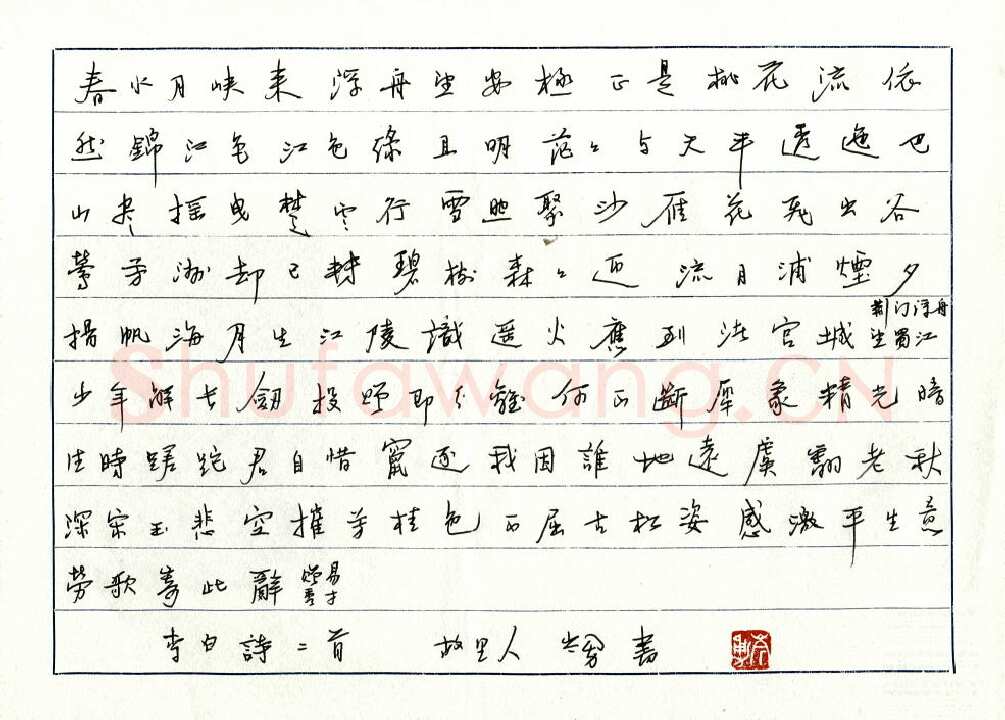 春水月峡来浮舟望安極正是桃花流依
然錦江色江色綠且明茫々与天平逶迤巴
山尽摇曳楚雲行雪照聚沙雁花飛出谷
鶯芳洲却已轉碧樹森々迎流目浦煙夕
揚帆海月生江陵識遥火應到渚宮城
荊门浮舟
望蜀江
少年解长劍投赠即分離何不断犀象精光暗
往時蹉跎君自惜竄逐我因誰地遠虞翻老秋
深宋玉悲空摧芳桂色不屈古松姿感激平生意
勞歌寄此辭
赠易
秀才
李白詩二首 故里人 書
Shufawang.CN